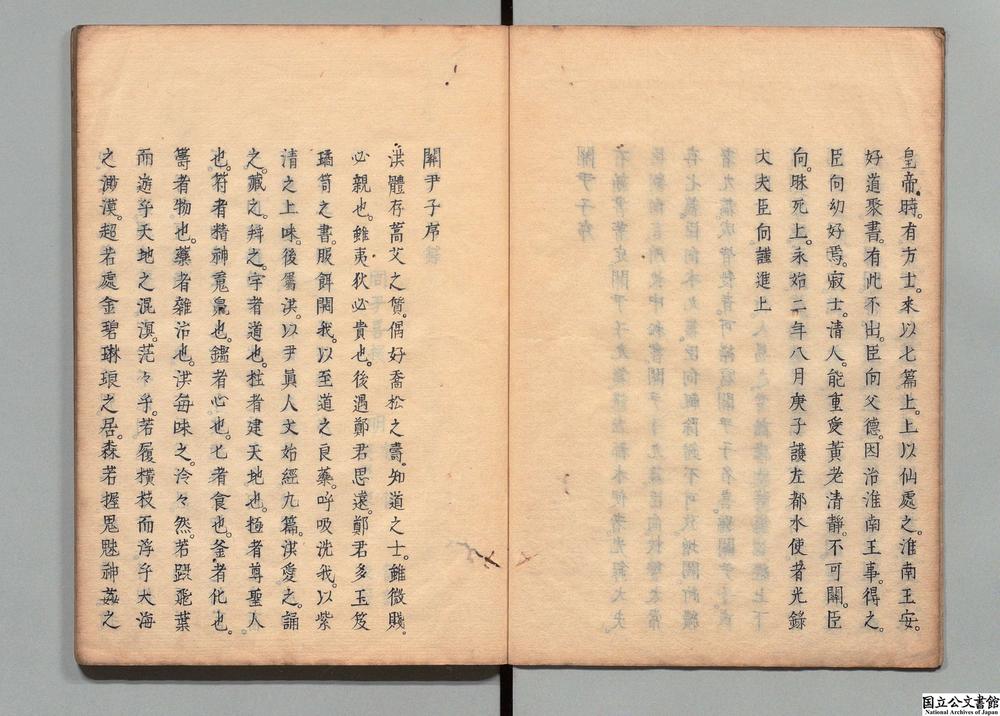 皇帝時。有方士。來以七篇。上。上以仙處之。淮南王安。
好道聚書。有此不出。臣向父德。因治淮南王事。得之。
臣向幼好焉。寂士。清人。能重愛黃老清靜。不可闕。臣
向昧死上。永始二年八月庚子護左都水使者光錄
大夫臣向謹進上
關尹子序
洪體存蒿艾之質。偶好喬松之壽。知道之士。雖微賤。
必親也。雖夷狄必貴也。後遇鄭君思遠。鄭君多玉笈
璚笥之書。服餌開我。以至道之良藥。呼吸洗我。以紫
清之上味。後屬洪。以尹眞人文始經九篇。洪愛之。誦
之。藏之。拜之。宇者道也。柱者建天地也。極者尊聖人
也。符者精神魂魄也。鑑者心也。匕者食也。釜者化也。
籌者物也。藥者雜治也。洪每味之。泠々然。若躡飛葉
而遊乎天地之混溟。茫々乎。若履橫杖而浮乎大海
之渺漠。超若處金碧琳琅之居。森若握鬼魅神姦之
国立公文書館
National Archives of Japan